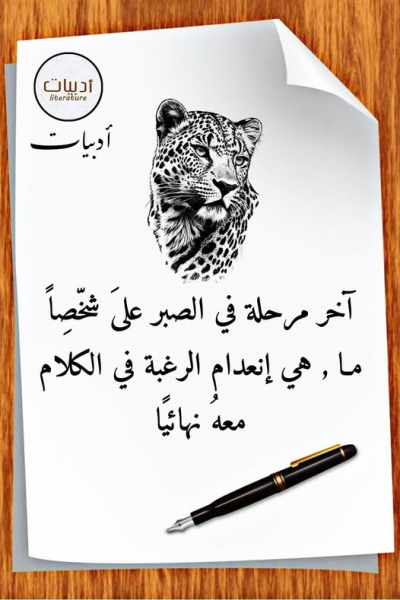 أدبيات
literature
أدبيات
آخر مرحلة في الصبر علىَ شخّصِاً
ما , هي إنعدام الرغبة في الكلام
معهُ نهائيًا